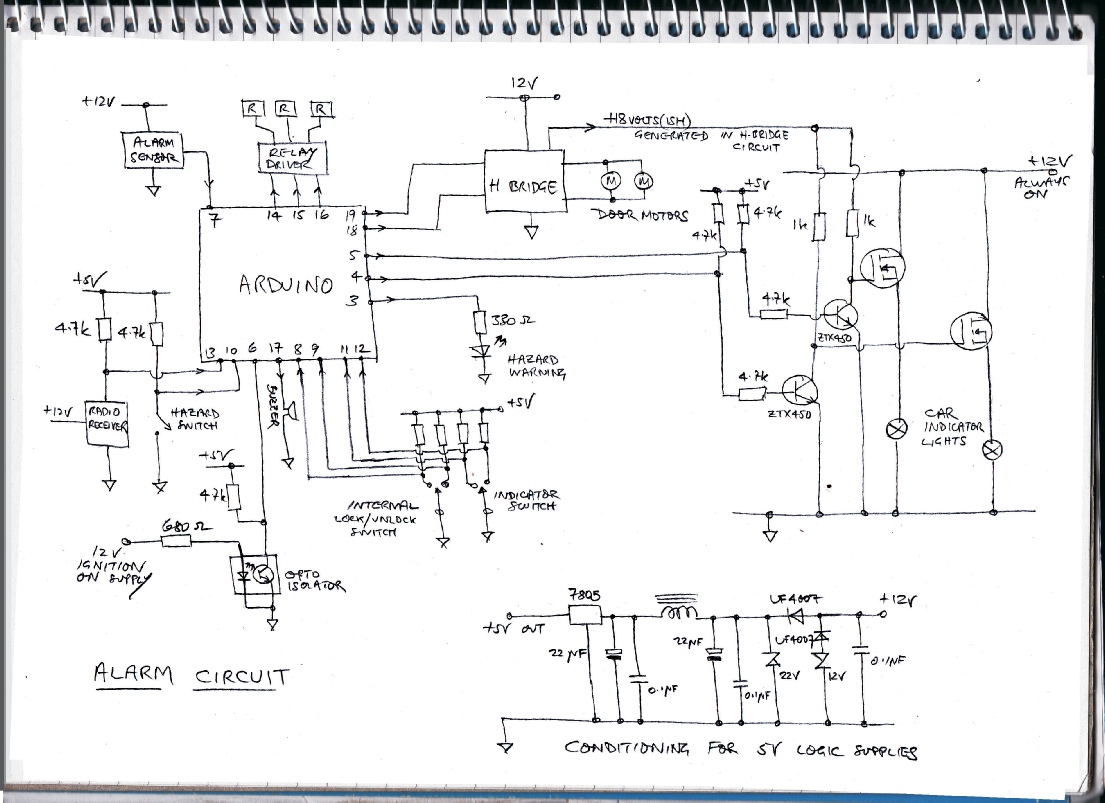 12V
+12V
ALARM
SENSOR
R R R
RELAY
DRIVER
+18 VOLTS (ISH)
GENERATED IN H-BRIDGE
CIRCUIT
+12V
ALWAYS
ON
H BRIDGE
M M
DOOR MOTORS
+5V
4.7k
4.7k
1k
1k
7
14 15 16
19
18
5
4
3
ARDUINO
13 10 6 17 8 9 11 12
+5V
4.7k
4.7k
330 Ω
HAZARD
WARNING
4.7k
ZTX450
4.7k
ZTX450
CAR
INDICATOR
LIGHTS
+12V
RADIO
RECEIVER
HAZARD
SWITCH
BUZZER
+5V
+5V
4.7k
INTERNAL
LOCK/UNLOCK
SWITCH
INDICATOR
SWITCH
680 Ω
12V
IGNITION
ON SUPPLY
OPTO
ISOLATOR
ALARM CIRCUIT
7805
+5V OUT
22µF
0.1µF
22µF
0.1µF
UF4007
UF4007
22V
12V
+12V
0.1µF
CONDITIONING FOR 5V LOGIC SUPPLIES